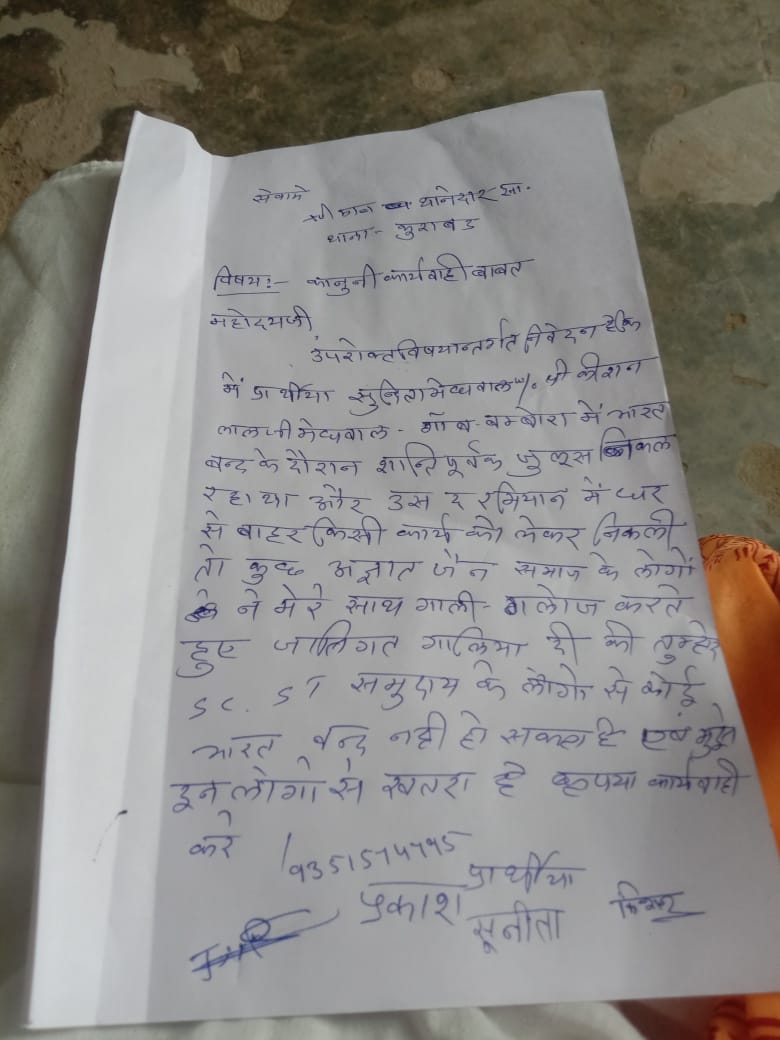 सेवामे
श्री मान थानेदार सा.
थाना- कुराबड
विषय:- कानुनी कार्यवाही बाबत
महोदयजी
उपरोक्त विषयान्तर्गत निवेदन है कि
में प्रार्थीया सुनिता मेघवाल w/o श्री किशन
लाल जी मेघवाल - गॉव- बम्बोरा में भारत
बन्द के दौरान शान्ति पूर्वक जुलूस निकल
रहा था और उस दरमियान में घर
से बाहर किसी कार्य को लेकर निकली
तो कुछ अज्ञात जैन समाज के लोगों
ने मेरे साथ गाली- गलोज करते
हुए जातिगत गालिया दी की तुम्हारे
SC. ST समुदाय के लोगो से कोई
भारत बन्द नही हो सकता है एवं मुझे
इन लोगो से खतरा है कृपया कार्यवाही
करे
प्रार्थीया
प्रकाश सूनीता